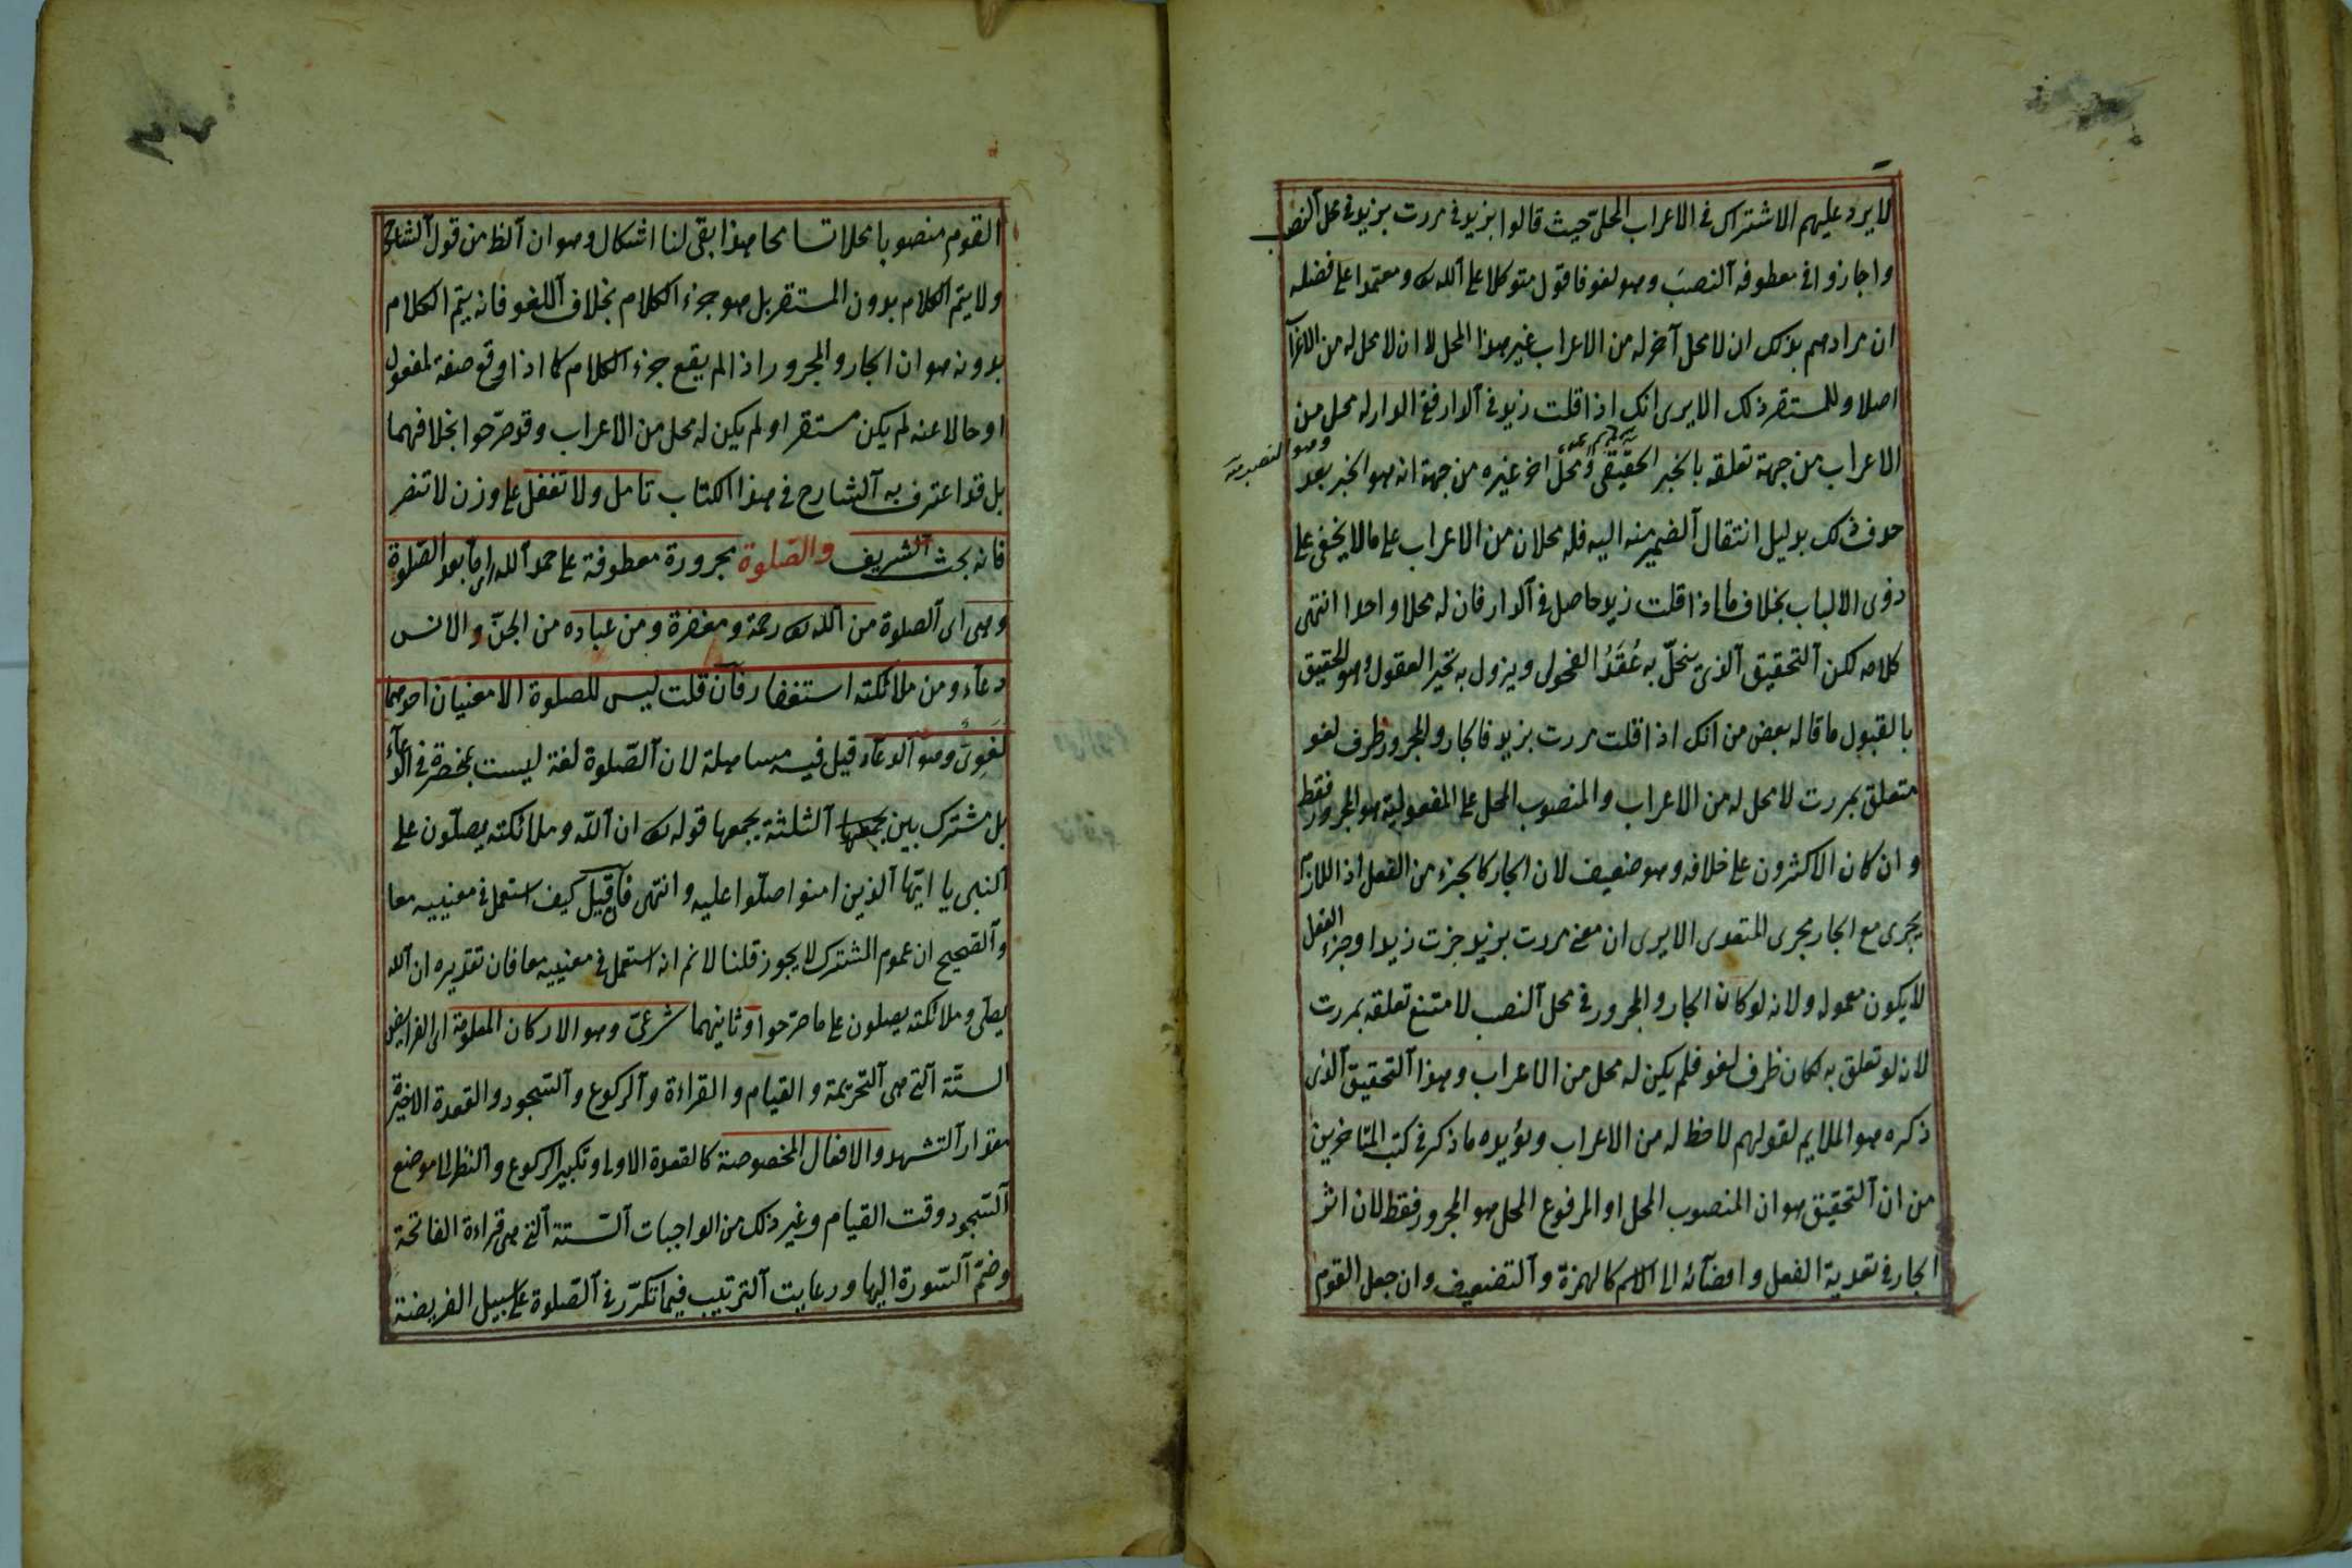 لا يرد عليهم الاشتراك في الاعراب المحلى حيث قالوا بزيد في مررت بزيد في محل النصب
واجازوا في معطوفه النصبَ وهو لغو فاقول متوكلا على الله ومعتمدا على فضله
ان مرادهم بذلك ان لا محل آخر له من الاعراب غير هذا المحل لا ان لا محل له من الاعراب
اصلا وللمستقر ذلك الا يرى انك اذا قلت زيد في الدار ففي الدار له محل من
الاعراب من جهة تعلقه بالخبر الحقيقى ومحل اخر غيره من جهة انه هو الخبر بعد
حذف ذلك بدليل انتقال الضمير منه اليه فله محلان من الاعراب على ما لا يخفى على
ذوى الالباب بخلاف ما اذا قلت زيد حاصل في الدار فان له محلا واحدا انتهى
كلامه لكن التحقيق الذى ينحلّ به عُقَدُ الفحول ويزول به تحير العقول وهو الحقيق
بالقبول ما قاله بعض من انك اذا قلت مررت بزيد فالجار والمجرور ظرف لغو
متعلق بمررت لا محل له من الاعراب والمنصوب المحل على المفعولية هو المجرور فقط
وان كان الاكثرون على خلافه وهو ضعيف لان الجار كالجزء من الفعل اذ اللازم
يجرى مع الجار مجرى المتعدى الا يرى ان معنى مررت بزيد جزت زيدا وجزء الفعل
لا يكون معموله ولانه لو كان الجار والمجرور في محل النصب لامتنع تعلقه بمررت
لانه لو تعلق به لكان ظرف لغو فلم يكن له محل من الاعراب وهذا التحقيق الذى
ذكره هو الملايم لقولهم لا حظ له من الاعراب ويؤيده ما ذكر في كتب المتاخرين
من ان التحقيق هو ان المنصوب المحل او المرفوع المحل هو المجرور فقط لان اثر
الجار في تعدية الفعل وافضائه الى الاسم كالهمزة والتضعيف وان جعل القوم
القوم منصوبا محلا تسامحا هذا بقى لنا اشكال وهو ان الظ من قول الشارح
ولا يتم الكلام بدون المستقر بل هو جزء الكلام بخلاف اللغو فانه يتم الكلام
بدونه هو ان الجار والمجرور اذا لم يقع جزء الكلام كما اذا وقع صفة لمفعول
او حالا عنه لم يكن مستقرا ولم يكن له محل من الاعراب وقد صرّحوا بخلافهما
بل قد اعترف به الشارح في هذا الكتاب تامل ولا تغفل على وزن لا تنصر
فانه بحث الشريف والصّلوة مجرورة معطوفة على حمد الله اى وبعد الصّلوة
وهى اى الصلوة من الله رحمة ومغفرة ومن عباده من الجنّ والانس
دعاء ومن ملائكته استغفار فان قلت ليس للصلوة الا معنيان احدهما
لغوىّ وهو الدعاء قيل فيه مساهلة لان الصّلوة لغة ليست بمنحصرة في الدعاء
بل مشترك بين الثلثة يجمعها قوله ان الله وملائكته يصلّون على
النبى يا ايّها الذين امنوا صلّوا عليه وانتهى فان قيل كيف استعمل في معنييه معا
والصّحيح ان عموم المشترك لا يجوز قلنا لا نم انه استعمل في معنييه معا فان تقديره ان الله
يصلّى وملائكته يصلون على ما صرّحوا وثانيهما شرعىّ وهو الاركان المعلومة اى الفرائض
الستّة التى هى التحريمة والقيام والقراءة والركوع والسّجود والقعدة الاخيرة
مقدار التشهد والافعال المخصوصة كالقعدة الاولى وتكبير الركوع والنظر الى موضع
السّجود وقت القيام وغير ذلك من الواجبات السّتة التى هى قراءة الفاتحة
وضمّ السّورة اليها ورعايت الترتيب فيما تكرّر في الصّلوة على سبيل الفريضة